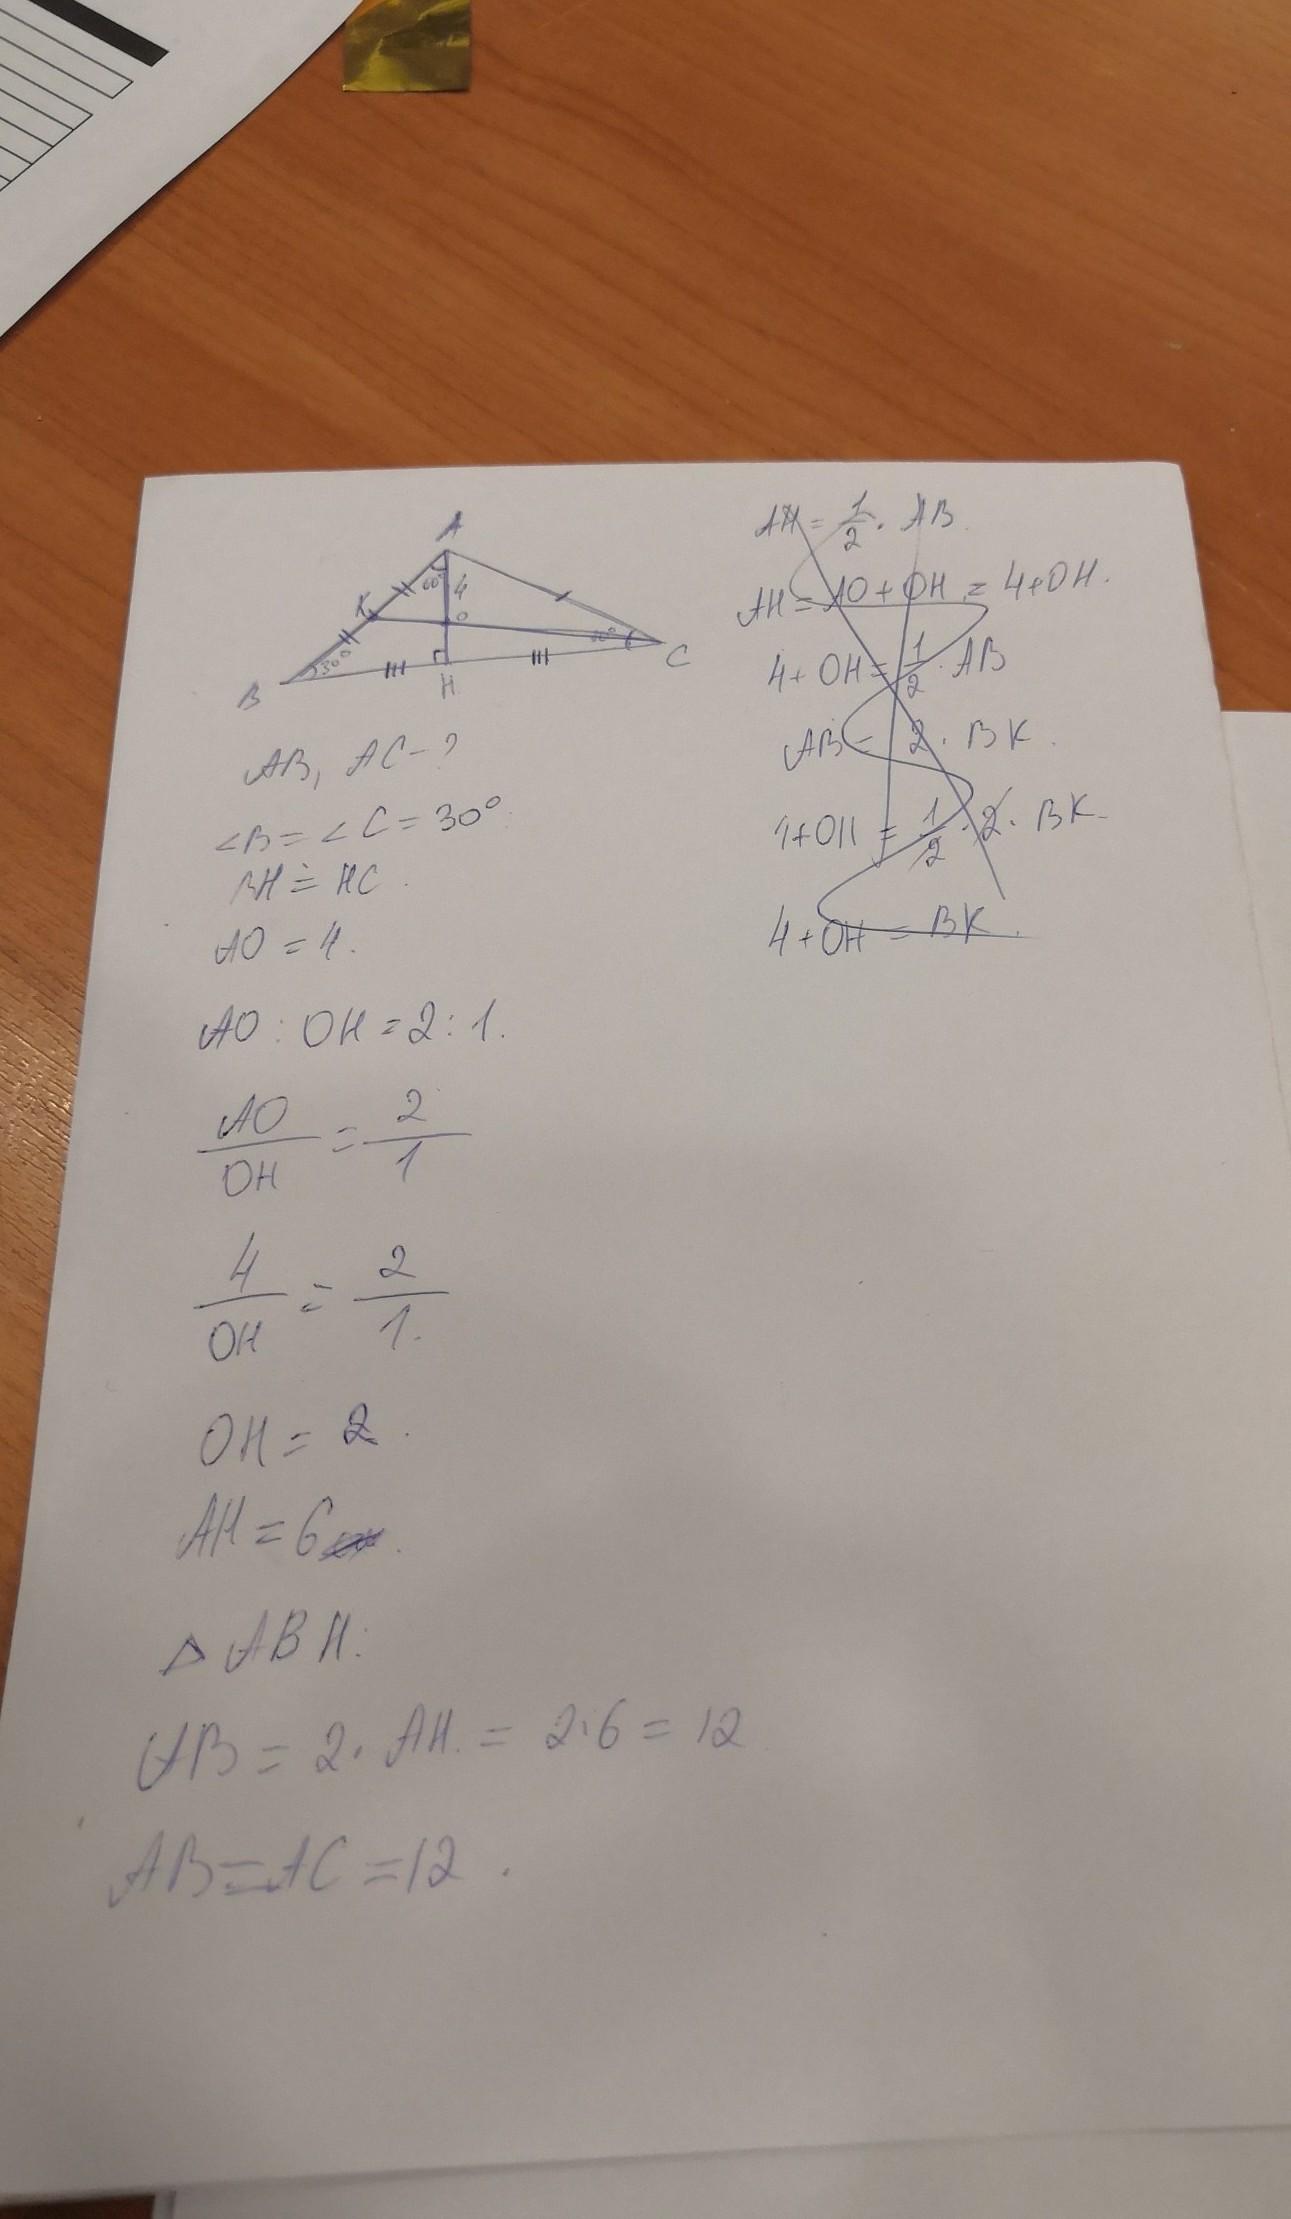 A
60°
4
K
O
30°
30°
B
H
C
AB, AC - ?
∠B = ∠C = 30°.
BH = HC.
AO = 4.
AO : OH = 2 : 1.
AO/OH = 2/1
4/OH = 2/1.
OH = 2.
AH = 6.
△ABH:
AB = 2 · AH = 2 · 6 = 12
AB = AC = 12.
AH = 1/2 · AB.
AH = AO + OH = 4 + OH.
4 + OH = 1/2 · AB
AB = 2 · BK.
4 + OH = 1/2 · 2 · BK.
4 + OH = BK.